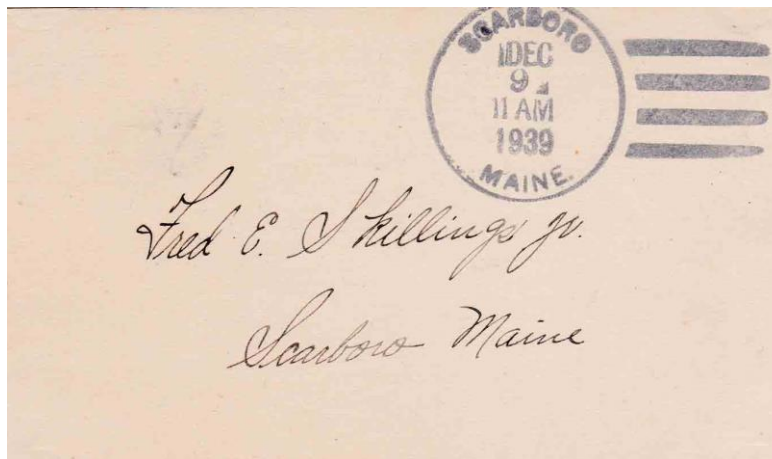 SCARBORO
DEC
9
11 AM
1939
MAINE.
Fred E. Skillings Jr.
Scarboro Maine